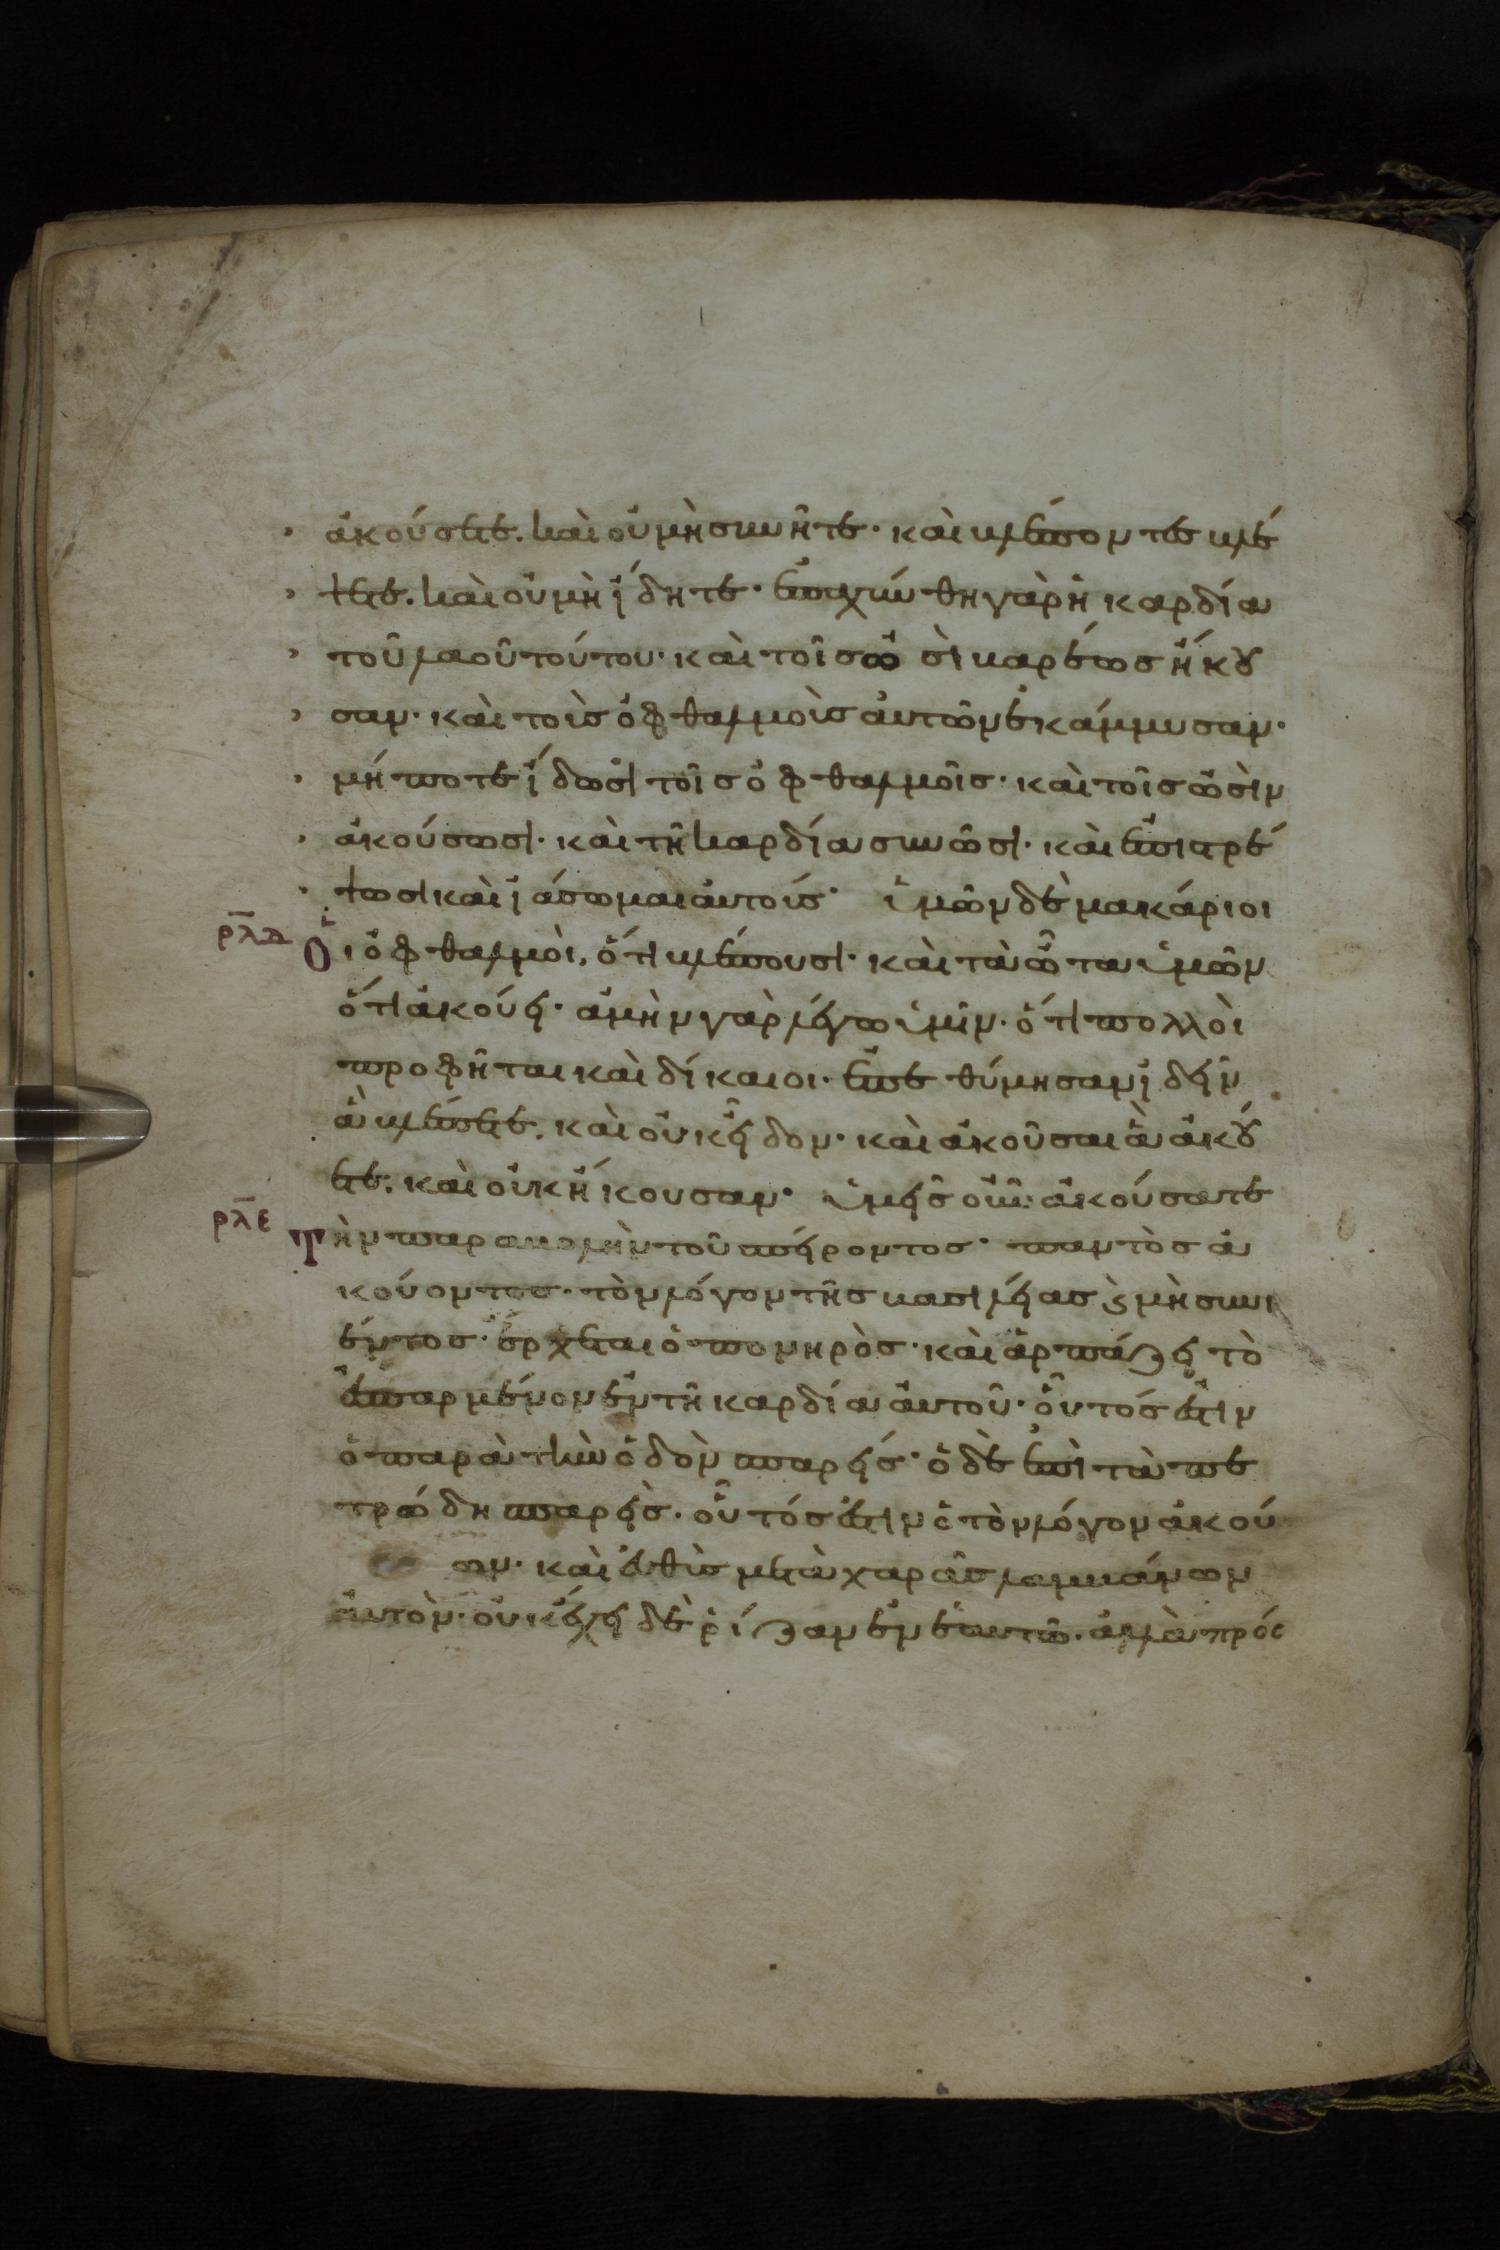 ἀκούσετε. καὶ οὐ μὴ συνῆτε· καὶ βλέποντες βλέ
ψετε. καὶ οὐ μὴ ἴδητε· ἐπαχύνθη γὰρ ἡ καρδία
τοῦ λαοῦ τούτου· καὶ τοῖς ὠσὶ βαρέως ἤκου
σαν· καὶ τοὺς ὀφθαλμοὺς αὐτῶν ἐκάμμυσαν·
μήποτε ἴδωσι τοῖς ὀφθαλμοῖς· καὶ τοῖς ὠσὶν
ἀκούσωσι· καὶ τῆ καρδία συνῶσι· καὶ ἐπιστρέ
ψωσι καὶ ἰάσωμαι αὐτούς· ὑμῶν δὲ μακάριοι
ρλδ Ὁι ὀφθαλμοὶ, ὅτι βλέπουσι· καὶ τὰ ὦτα ὑμῶν
ὅτι ἀκούει· ἀμὴν γὰρ λέγω ὑμῖν· ὅτι πολλοὶ
προφῆται καὶ δίκαιοι· ἐπεθύμησαν ἰδεῖν
ἃ βλέπετε. καὶ οὐκ εἶδον· καὶ ἀκοῦσαι ἃ ἀκού
ετε. καὶ οὐκ ἤκουσαν· ὑμεῖς οὖν ἀκούσατε
ρλε Τὴν παραβολὴν τοῦ σπείροντος· παντὸς ἀ
κούοντος· τὸν λόγον τῆς βασιλείας ϗ μὴ συνι
έντος· ἔρχεται ὁ πονηρὸς· καὶ ἁρπάζει τὸ
ἐσπαρμένον ἐν τῆ καρδία αὐτοῦ· οὗτός ἐστιν
ὁ παρὰ τὴν ὁδὸν σπαρείς· ὁ δὲ ἐπὶ τὰ πε
τρώδη σπαρεὶς· οὗτός ἐστιν ὁ τὸν λόγον ἀκού
ων· καὶ εὐθὺς μετὰ χαρᾶς λαμβάνων
αὐτὸν· οὐκ ἔχει δὲ ῥίζαν ἐν ἑαυτῶ· ἀλλὰ πρός